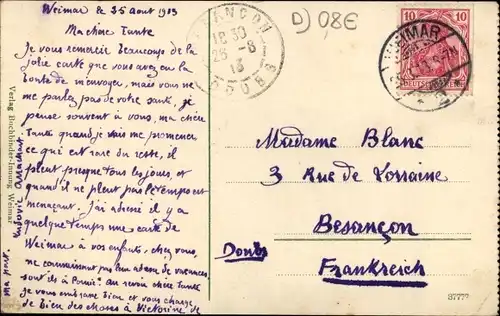 Weimar le 25 Aout 1913
Ma chère Tante
Je vous remercie beaucoup de la
jolie carte que vous avez eu la
bonté de m'envoyer, mais vous ne
me parlez pas de votre santé, je
pense souvent à vous, ma chère
Tante quand je vais me promener
ce qui est rare du reste, il
pleut presque tous les jours, et
quand il ne pleut pas le temps est
menaçant. J'ai adressé il y a
quelque temps une carte de
Weimar à vos enfants, chez vous,
ne connaissant pas leur adresse de vacances,
sont ils à            Au revoir ma chère tante
je vous embrasse bien et vous charge
de bien des choses à Victorine de
ma part.
Verlag Buchbinder-Innung Weimar
BESANÇON
18 30
25 -8
13
DOUBS
D) 0,8€
10 10
DEUTSCHES REICH
WEIMAR
Madame Blanc
3 Rue de Lorraine
Besançon
Doubs
Frankreich
37777